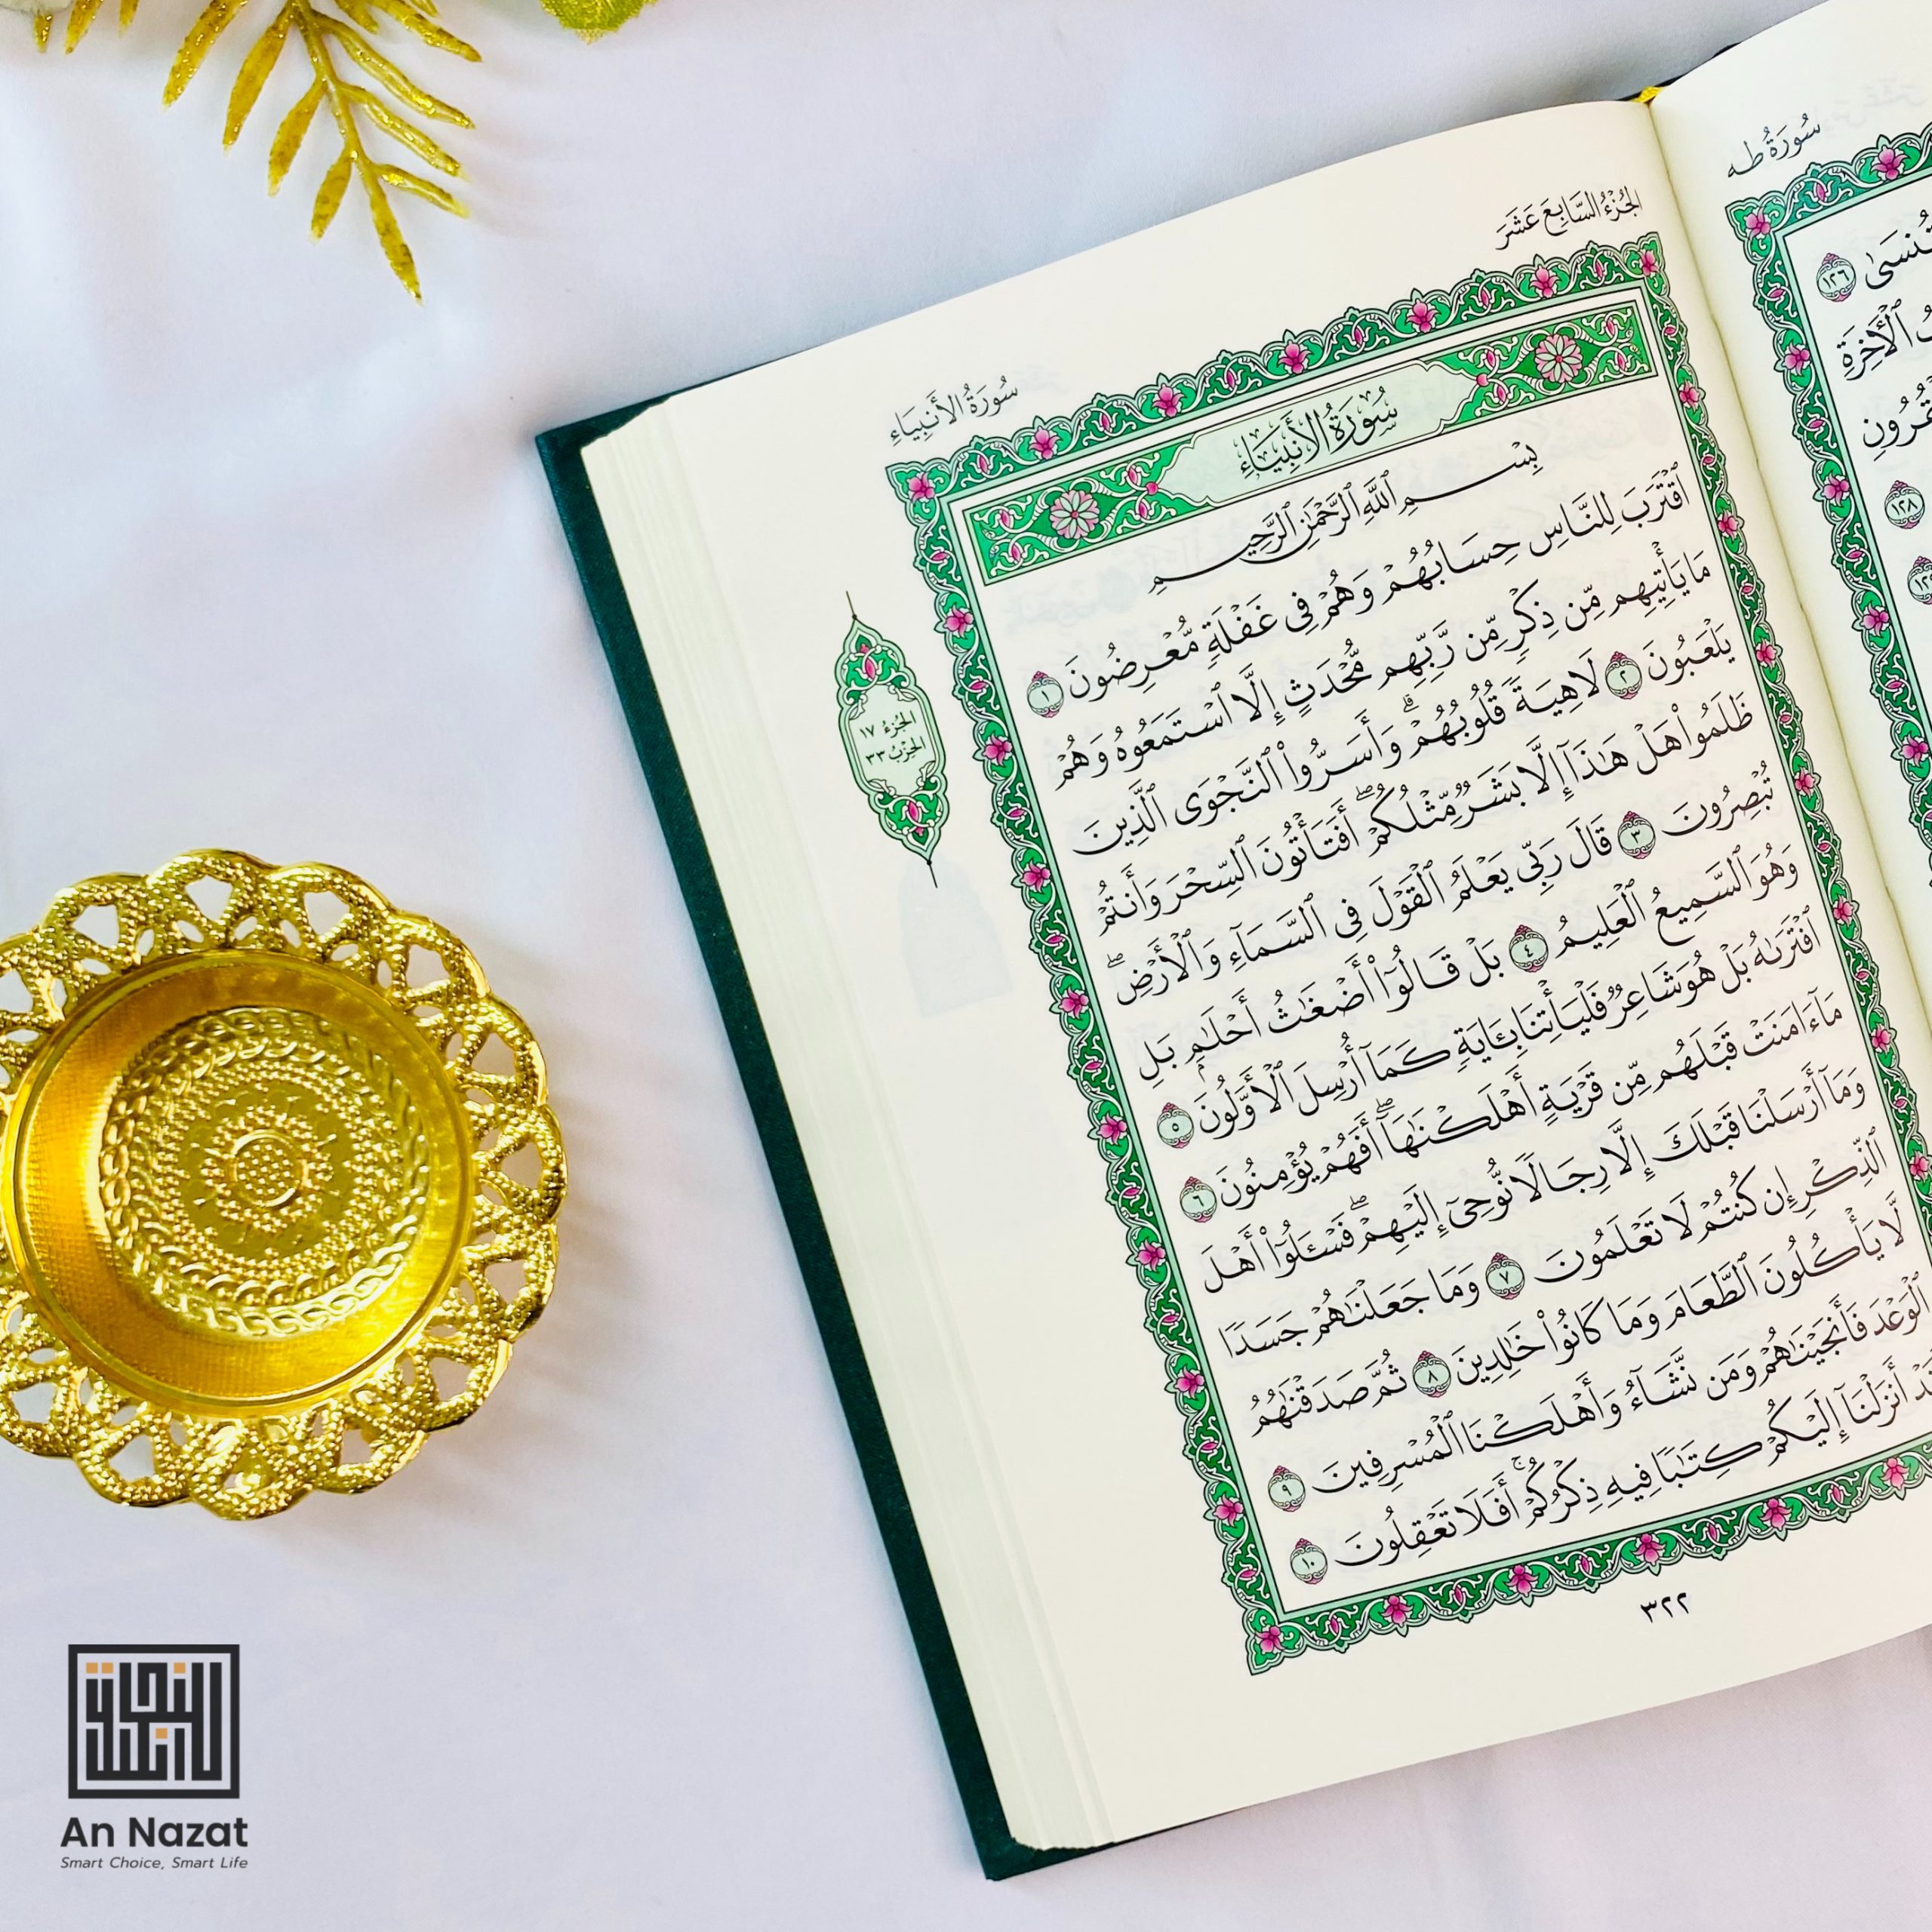 سُورَةُ طه
تُنسَىٰ ١٢٦
ٱلْأَخِرَةِ
١٢٨
الجُزْءُ السَّابِعَ عَشَرَ
سُورَةُ الأَنبِيَاءِ
سُورَةُ الأَنبِيَاءِ
بِسْمِ ٱللَّهِ ٱلرَّحْمَٰنِ ٱلرَّحِيمِ
ٱقْتَرَبَ لِلنَّاسِ حِسَابُهُمْ وَهُمْ فِى غَفْلَةٍ مُّعْرِضُونَ ١
مَا يَأْتِيهِم مِّن ذِكْرٍ مِّن رَّبِّهِم مُّحْدَثٍ إِلَّا ٱسْتَمَعُوهُ وَهُمْ
يَلْعَبُونَ ٢ لَاهِيَةً قُلُوبُهُمْ ۗ وَأَسَرُّوا۟ ٱلنَّجْوَى ٱلَّذِينَ
ظَلَمُوا۟ هَلْ هَٰذَآ إِلَّا بَشَرٌ مِّثْلُكُمْ ۖ أَفَتَأْتُونَ ٱلسِّحْرَ وَأَنتُمْ
تُبْصِرُونَ ٣ قَالَ رَبِّى يَعْلَمُ ٱلْقَوْلَ فِى ٱلسَّمَآءِ وَٱلْأَرْضِ ۖ
وَهُوَ ٱلسَّمِيعُ ٱلْعَلِيمُ ٤ بَلْ قَالُوٓا۟ أَضْغَٰثُ أَحْلَٰمٍۭ بَلِ
ٱفْتَرَىٰهُ بَلْ هُوَ شَاعِرٌ فَلْيَأْتِنَا بِـَٔايَةٍ كَمَآ أُرْسِلَ ٱلْأَوَّلُونَ ٥
مَآ ءَامَنَتْ قَبْلَهُم مِّن قَرْيَةٍ أَهْلَكْنَٰهَآ ۖ أَفَهُمْ يُؤْمِنُونَ ٦
وَمَآ أَرْسَلْنَا قَبْلَكَ إِلَّا رِجَالًا نُّوحِىٓ إِلَيْهِمْ ۖ فَسْـَٔلُوٓا۟ أَهْلَ
ٱلذِّكْرِ إِن كُنتُمْ لَا تَعْلَمُونَ ٧ وَمَا جَعَلْنَٰهُمْ جَسَدًا
لَّا يَأْكُلُونَ ٱلطَّعَامَ وَمَا كَانُوا۟ خَٰلِدِينَ ٨ ثُمَّ صَدَقْنَٰهُمُ
ٱلْوَعْدَ فَأَنجَيْنَٰهُمْ وَمَن نَّشَآءُ وَأَهْلَكْنَا ٱلْمُسْرِفِينَ ٩
أَنزَلْنَآ إِلَيْكُمْ كِتَٰبًا فِيهِ ذِكْرُكُمْ ۖ أَفَلَا تَعْقِلُونَ ١٠
الجُزْءُ ١٧
الحِزْبُ ٣٣
٣٢٢
An Nazat
Smart Choice, Smart Life